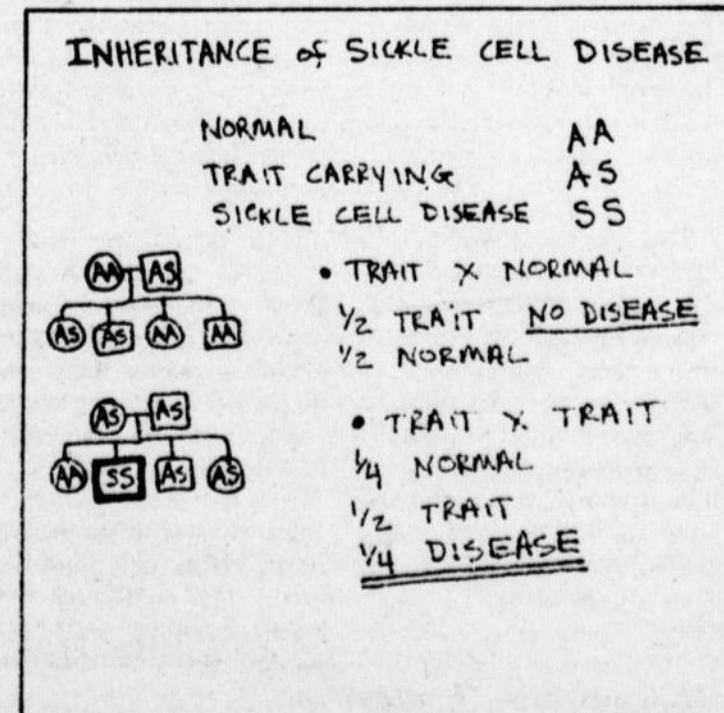 INHERITANCE of SICKLE CELL DISEASE
NORMAL AA
TRAIT CARRYING AS
SICKLE CELL DISEASE SS
AA AS
AS AS AA AA
• TRAIT X NORMAL
1/2 TRAIT NO DISEASE
1/2 NORMAL
AS AS
AA SS AS AS
• TRAIT X TRAIT
1/4 NORMAL
1/2 TRAIT
1/4 DISEASE